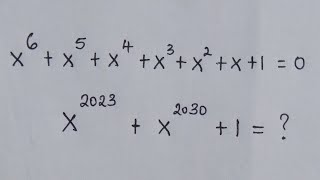 x⁶ + x⁵ + x⁴ + x³ + x² + x + 1 = 0
x²⁰²³ + x²⁰³⁰ + 1 = ?